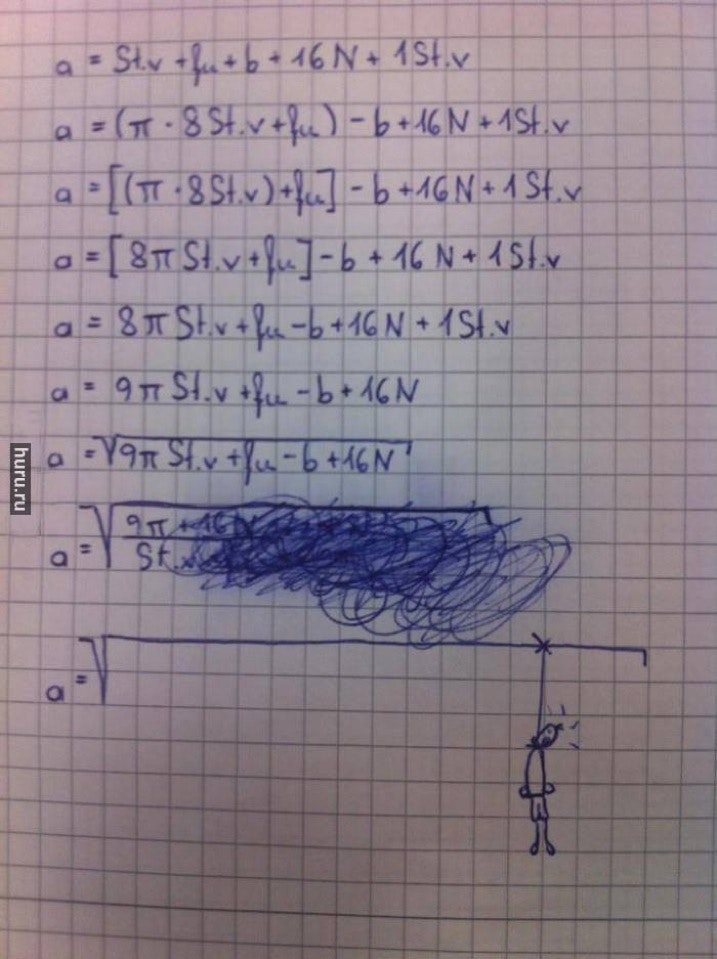 a = St.v + fu + b + 16 N + 1 St.v
a = (π · 8 St.v + fu) - b + 16 N + 1 St.v
a = [(π · 8 St.v) + fu] - b + 16 N + 1 St.v
a = [8π St.v + fu] - b + 16 N + 1 St.v
a = 8π St.v + fu - b + 16 N + 1 St.v
a = 9π St.v + fu - b + 16 N
a = √9π St.v + fu - b + 16 N
huru.ru
a = √
9π + 16 N
St.v
a = √